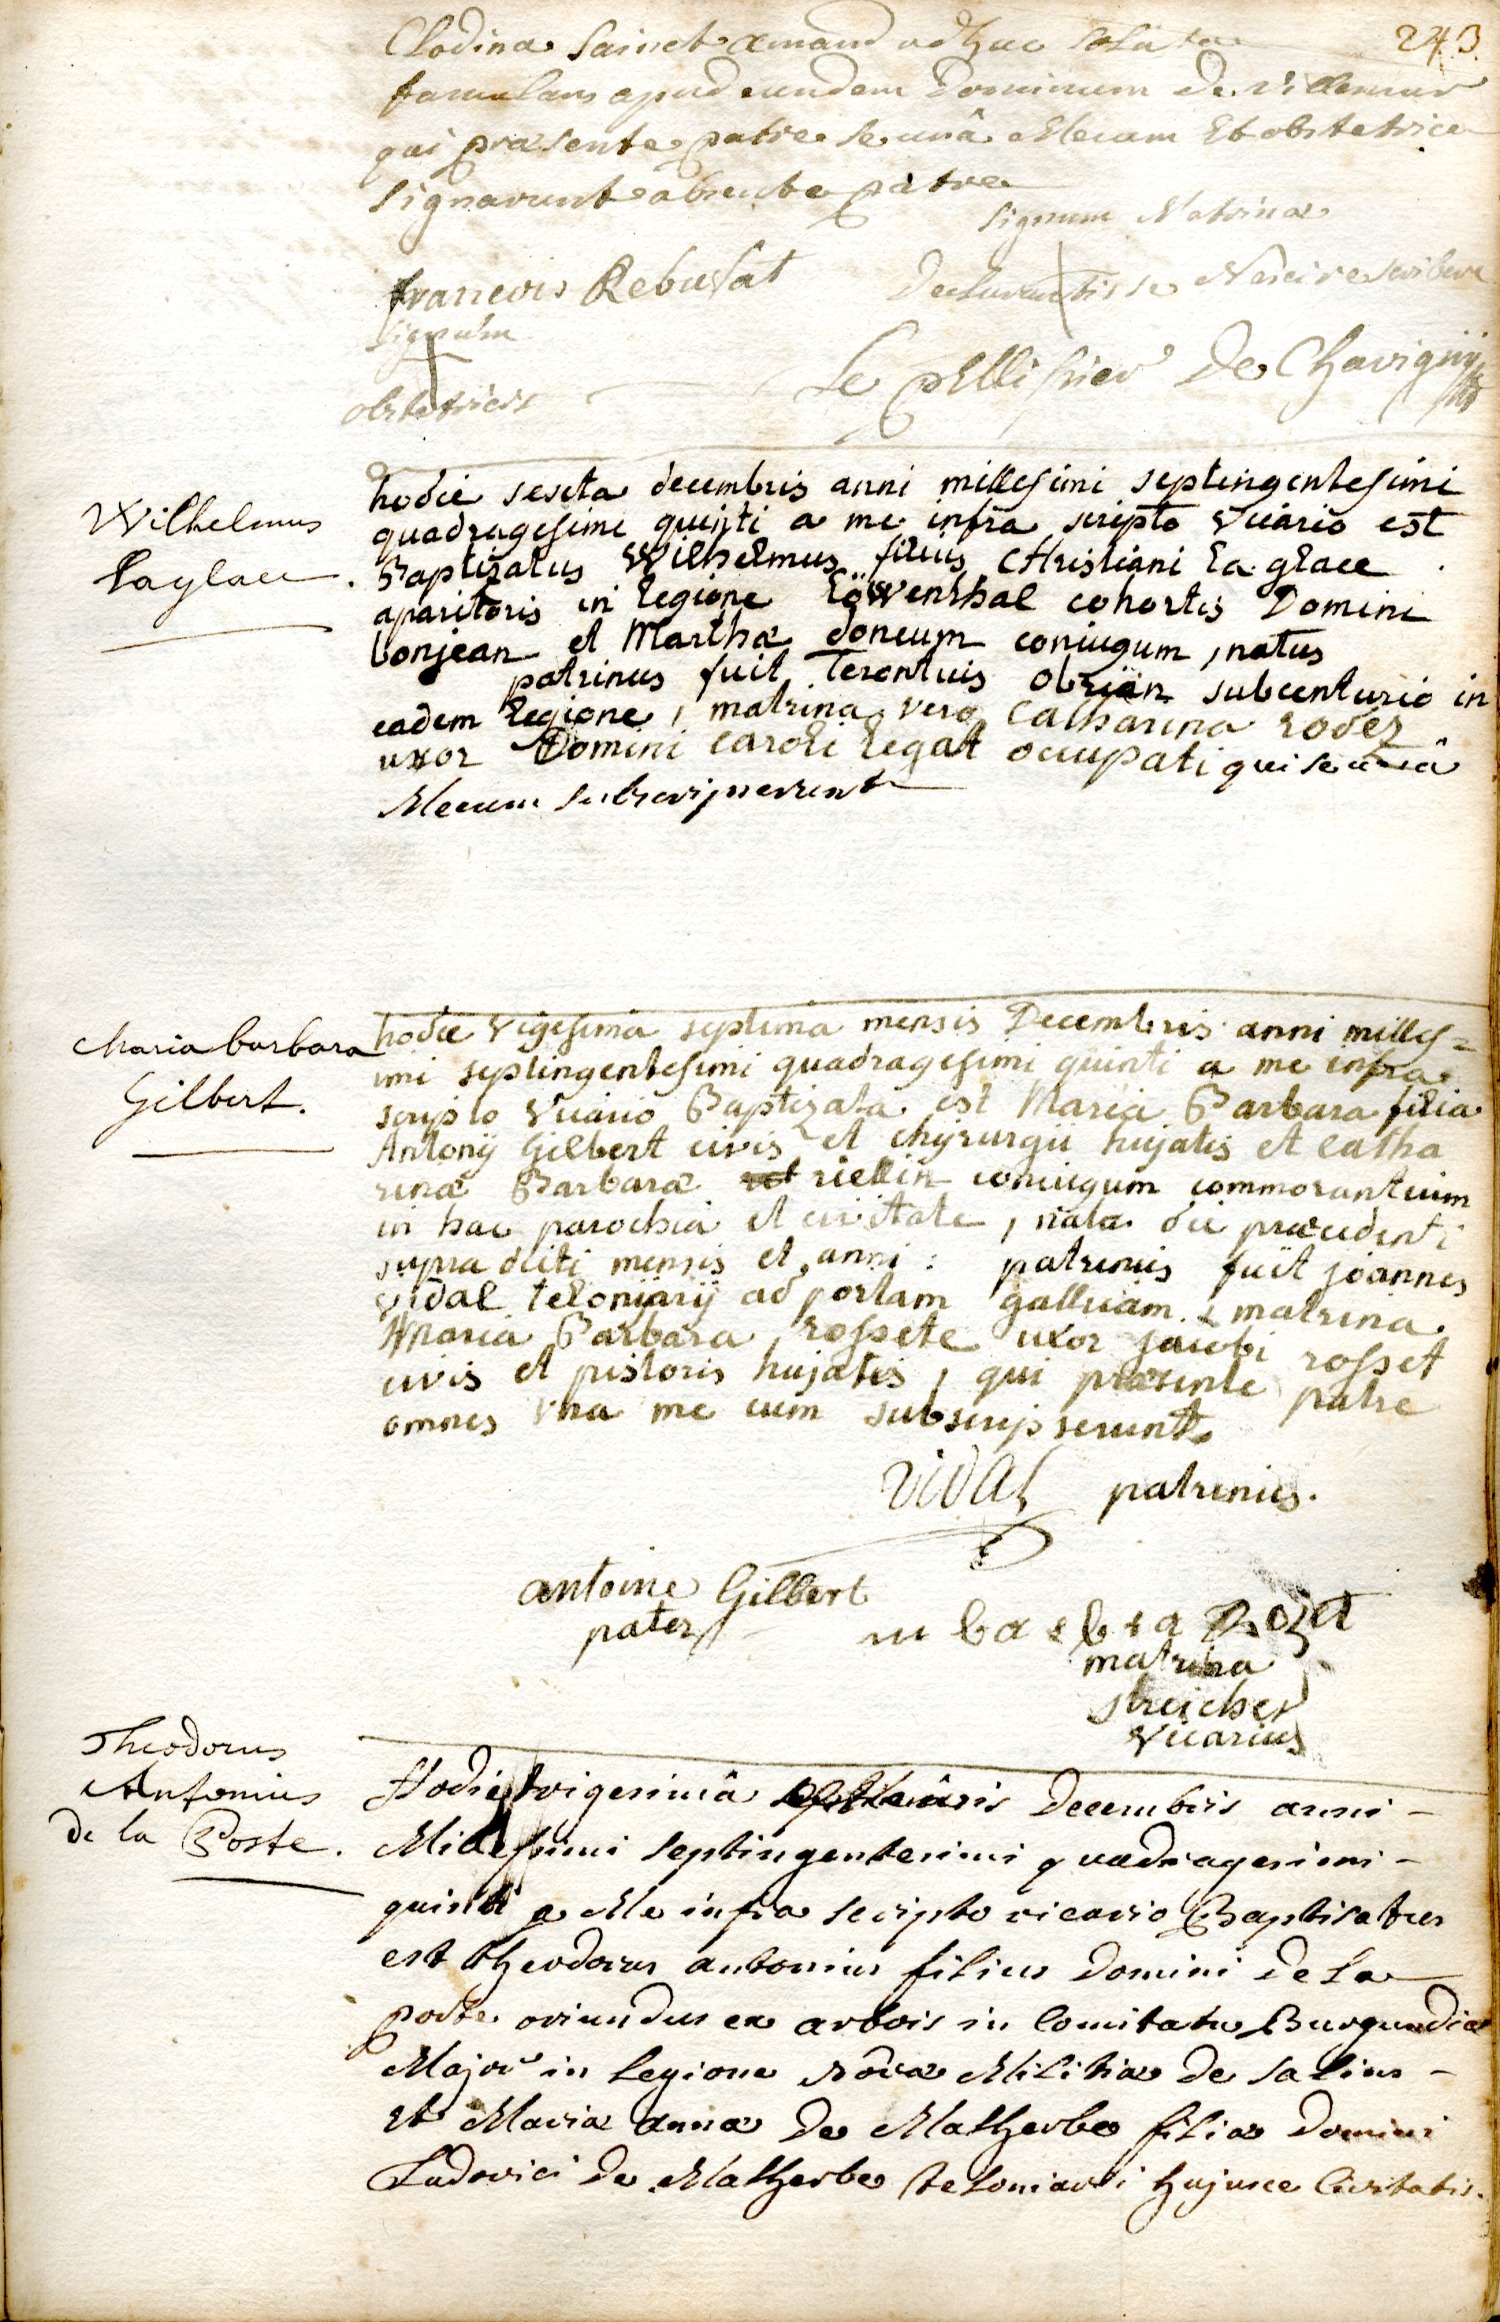 243
Clodina Sainct amand adhuc soluta
famulans apud eundem Dominum De villemur
qui præsente patre se unâ Mecum Et obstetrice
signarunt absente patre
signum Matrinæ
francois Rebufat
Declarantis se Nescire scribere
signum
Le pellissier De Chavigny
obstetricis
Wilhelmus
laglace.
hodie sexta decembris anni millesimi septingentesimi
quadragesimi quinti a me infra scripto vicario est
Baptizatus Wilhelmus filius christiani la glace
aparitoris in legione löwenthal cohortis Domini
bonjean et Marthæ doneum coniugum, natus
patrinus fuit Terentius obrian subcenturio in
eadem legione, matrina vero catharina rodez
uxor Domini caroli legat occupati qui se unâ
Mecum subscripserunt
Maria barbara
Gilbert.
hodie vigesima septima mensis Decembris anni milles=
imi septingentesimi quadragesimi quinti a me infra
scripto vicario Baptizata est Maria Barbara filia
Antonij Gilbert civis et chyrurgii hujatis et catha
rinæ Barbaræ riellin coniugum commorantium
in hac parochia et civitate, nata die præcedenti
supra dicti mensis et anni: patrinus fuit joannes
vidal telonijarij ad portam gallicam & matrina
Maria Barbara rossete uxor jacobi rosset
civis et pistoris hujatis, qui præsente patre
omnes vna me cum subscripserunt.
Vidal patrinus.
antoine Gilbert
pater
m barbra Rozat
matrina
streicher
vicarius
Theodorus
Antonius
de la Poste.
Hodie trigesimâ Decembris anni -
Millesimi septingentesimi quadragesimi -
quinti a Me infra scripto vicario Baptisatus
est theodorus antonius filius Domini De la
poste oriundus ex arbois in Comitatu Burgundiæ
Major in legione novæ Militiæ de salins -
et Mariæ annæ De Malherbe filiæ Domini
Ludovici De Malherbe teloniarii hujusce Civitatis.